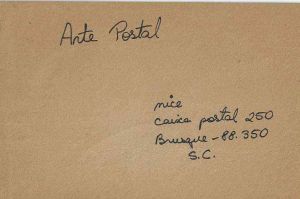 Arte Postal
nice
caixa postal 250
Brusque - 88.350
S.C.